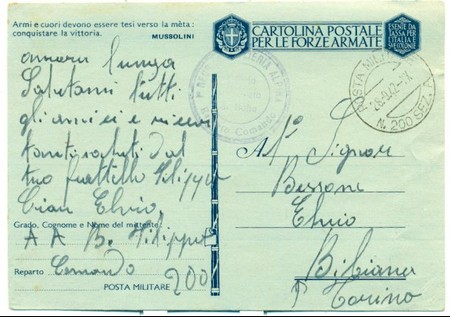 Armi e cuori devono essere tesi verso la mèta:
conquistare la vittoria.
MUSSOLINI
CARTOLINA POSTALE
PER LE FORZE ARMATE
ESENTE DA
TASSA PER
L'ITALIA E
POSTA MILITARE
N. 200 SEZ. A
lunga
Salutami tutti
gli amici e
tanti saluti dal
tuo fratello Filippo
Ciau Elvio
Grado, Cognome e Nome del mittente:
A A B. Filippo
Reparto Comando
POSTA MILITARE 200
Al Signor
Bessone
Elvio
Bibiana
Torino